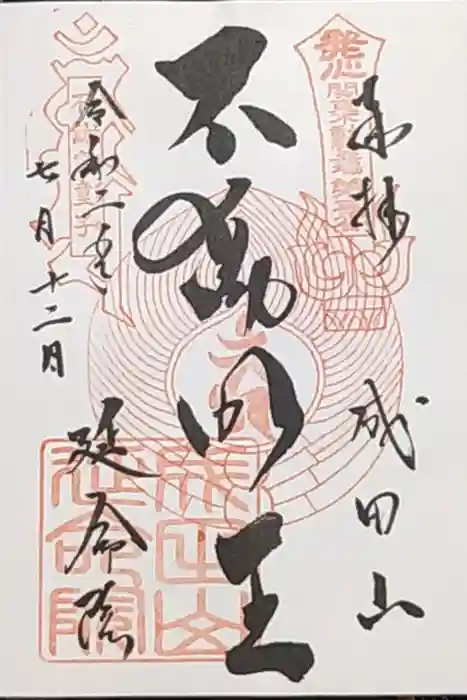 奉拝
成田山
不動明王
令和二年
七月十二日
延命院
発心
成田山
延命院